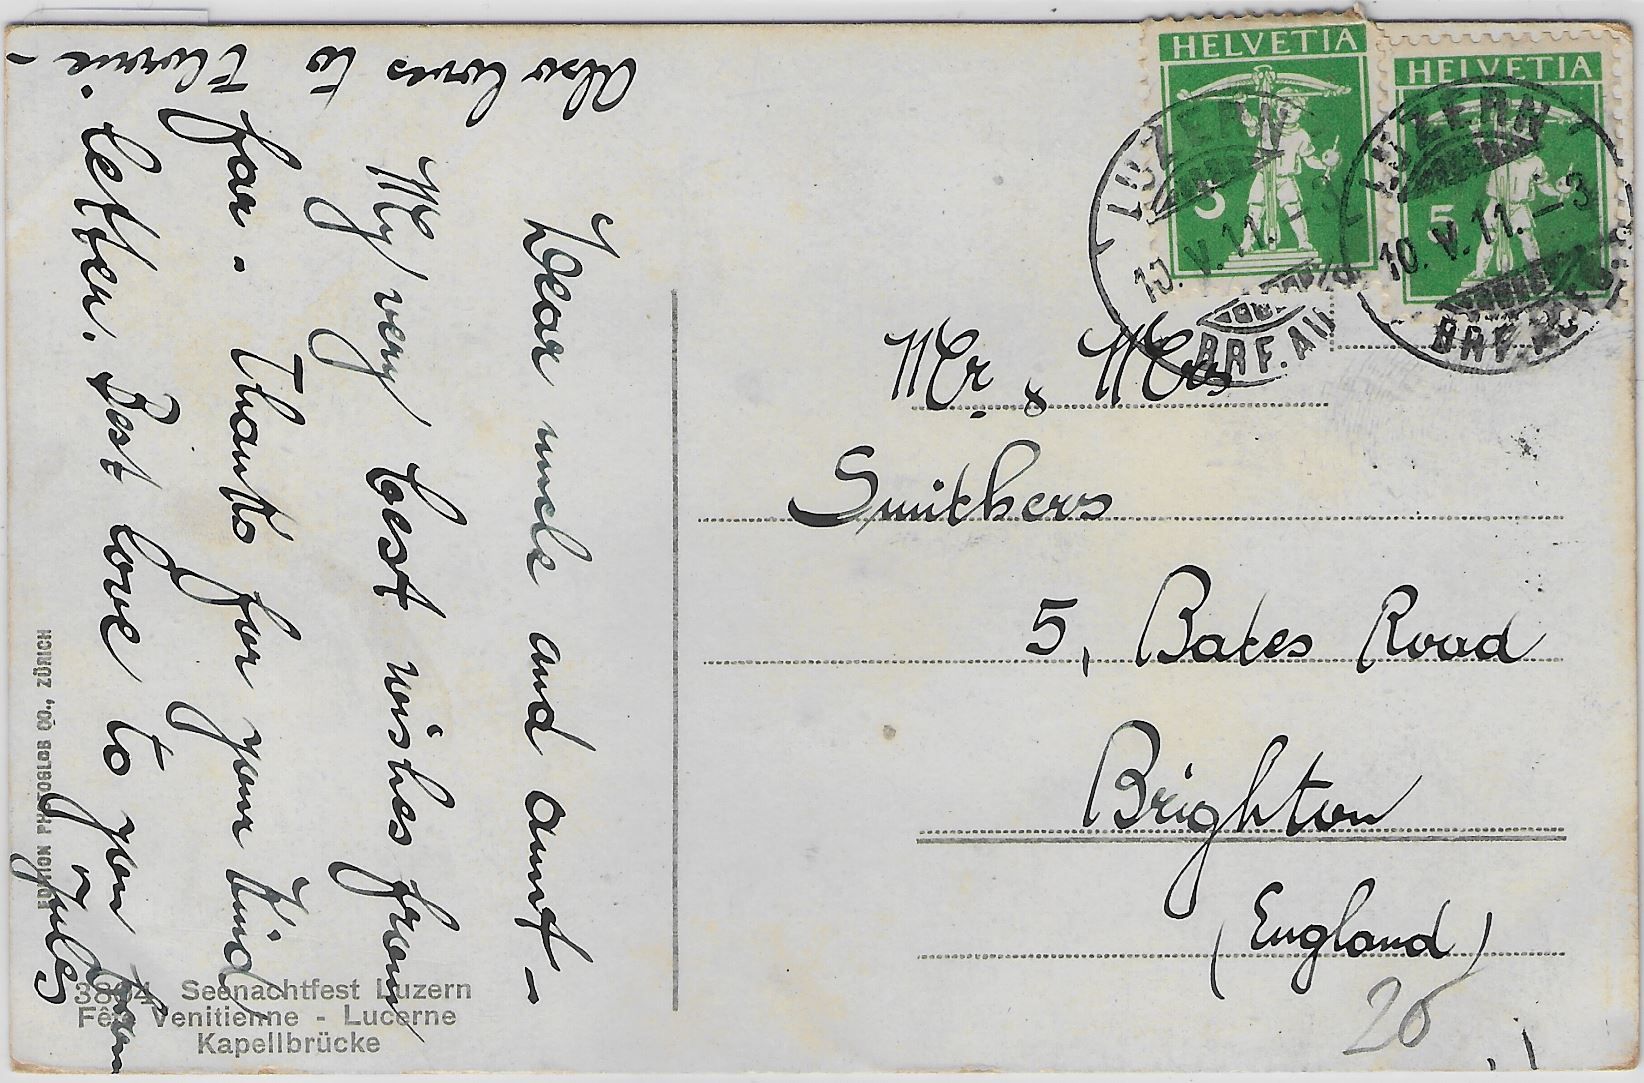 Dear uncle and aunt –
My very best wishes from
far. Thanks for your kind
letter. Best love to you
Jules
Also loves to
Florrie. –
HELVETIA
3
HELVETIA
5
LUZERN
10. V. 11. – 3
BRF. AU
LUZERN
10. V. 11. – 3
BRF. AUFG.
Mr. & Mrs
Smithers
5, Bates Road
Brighton
(England)
26
EDITION PHOTOGLOB CO., ZÜRICH
3894 Seenachtfest Luzern
Fête Venitienne - Lucerne
Kapellbrücke